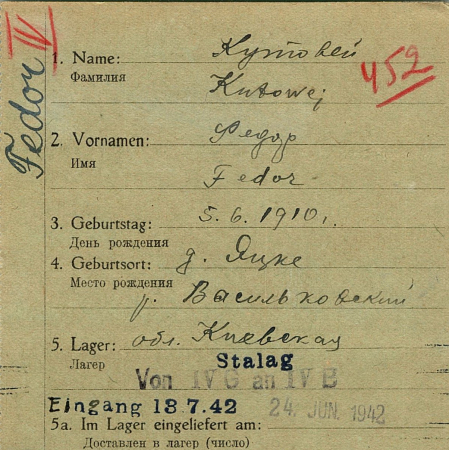 Fedor IV
1. Name: Кутовей
Фамилия
Kutowej
452
2. Vornamen: Федор
Имя
Fedor
3. Geburtstag: 5.6.1910г.
День рождения
4. Geburtsort: д. Яцке
Место рождения
р. Васильковский
5. Lager: обл. Киевская
Лагер
Stalag
Von IV G an IV B
Eingang 18 7.42 24. JUN. 1942
5a. Im Lager eingeliefert am:
Доставлен в лагер (число)